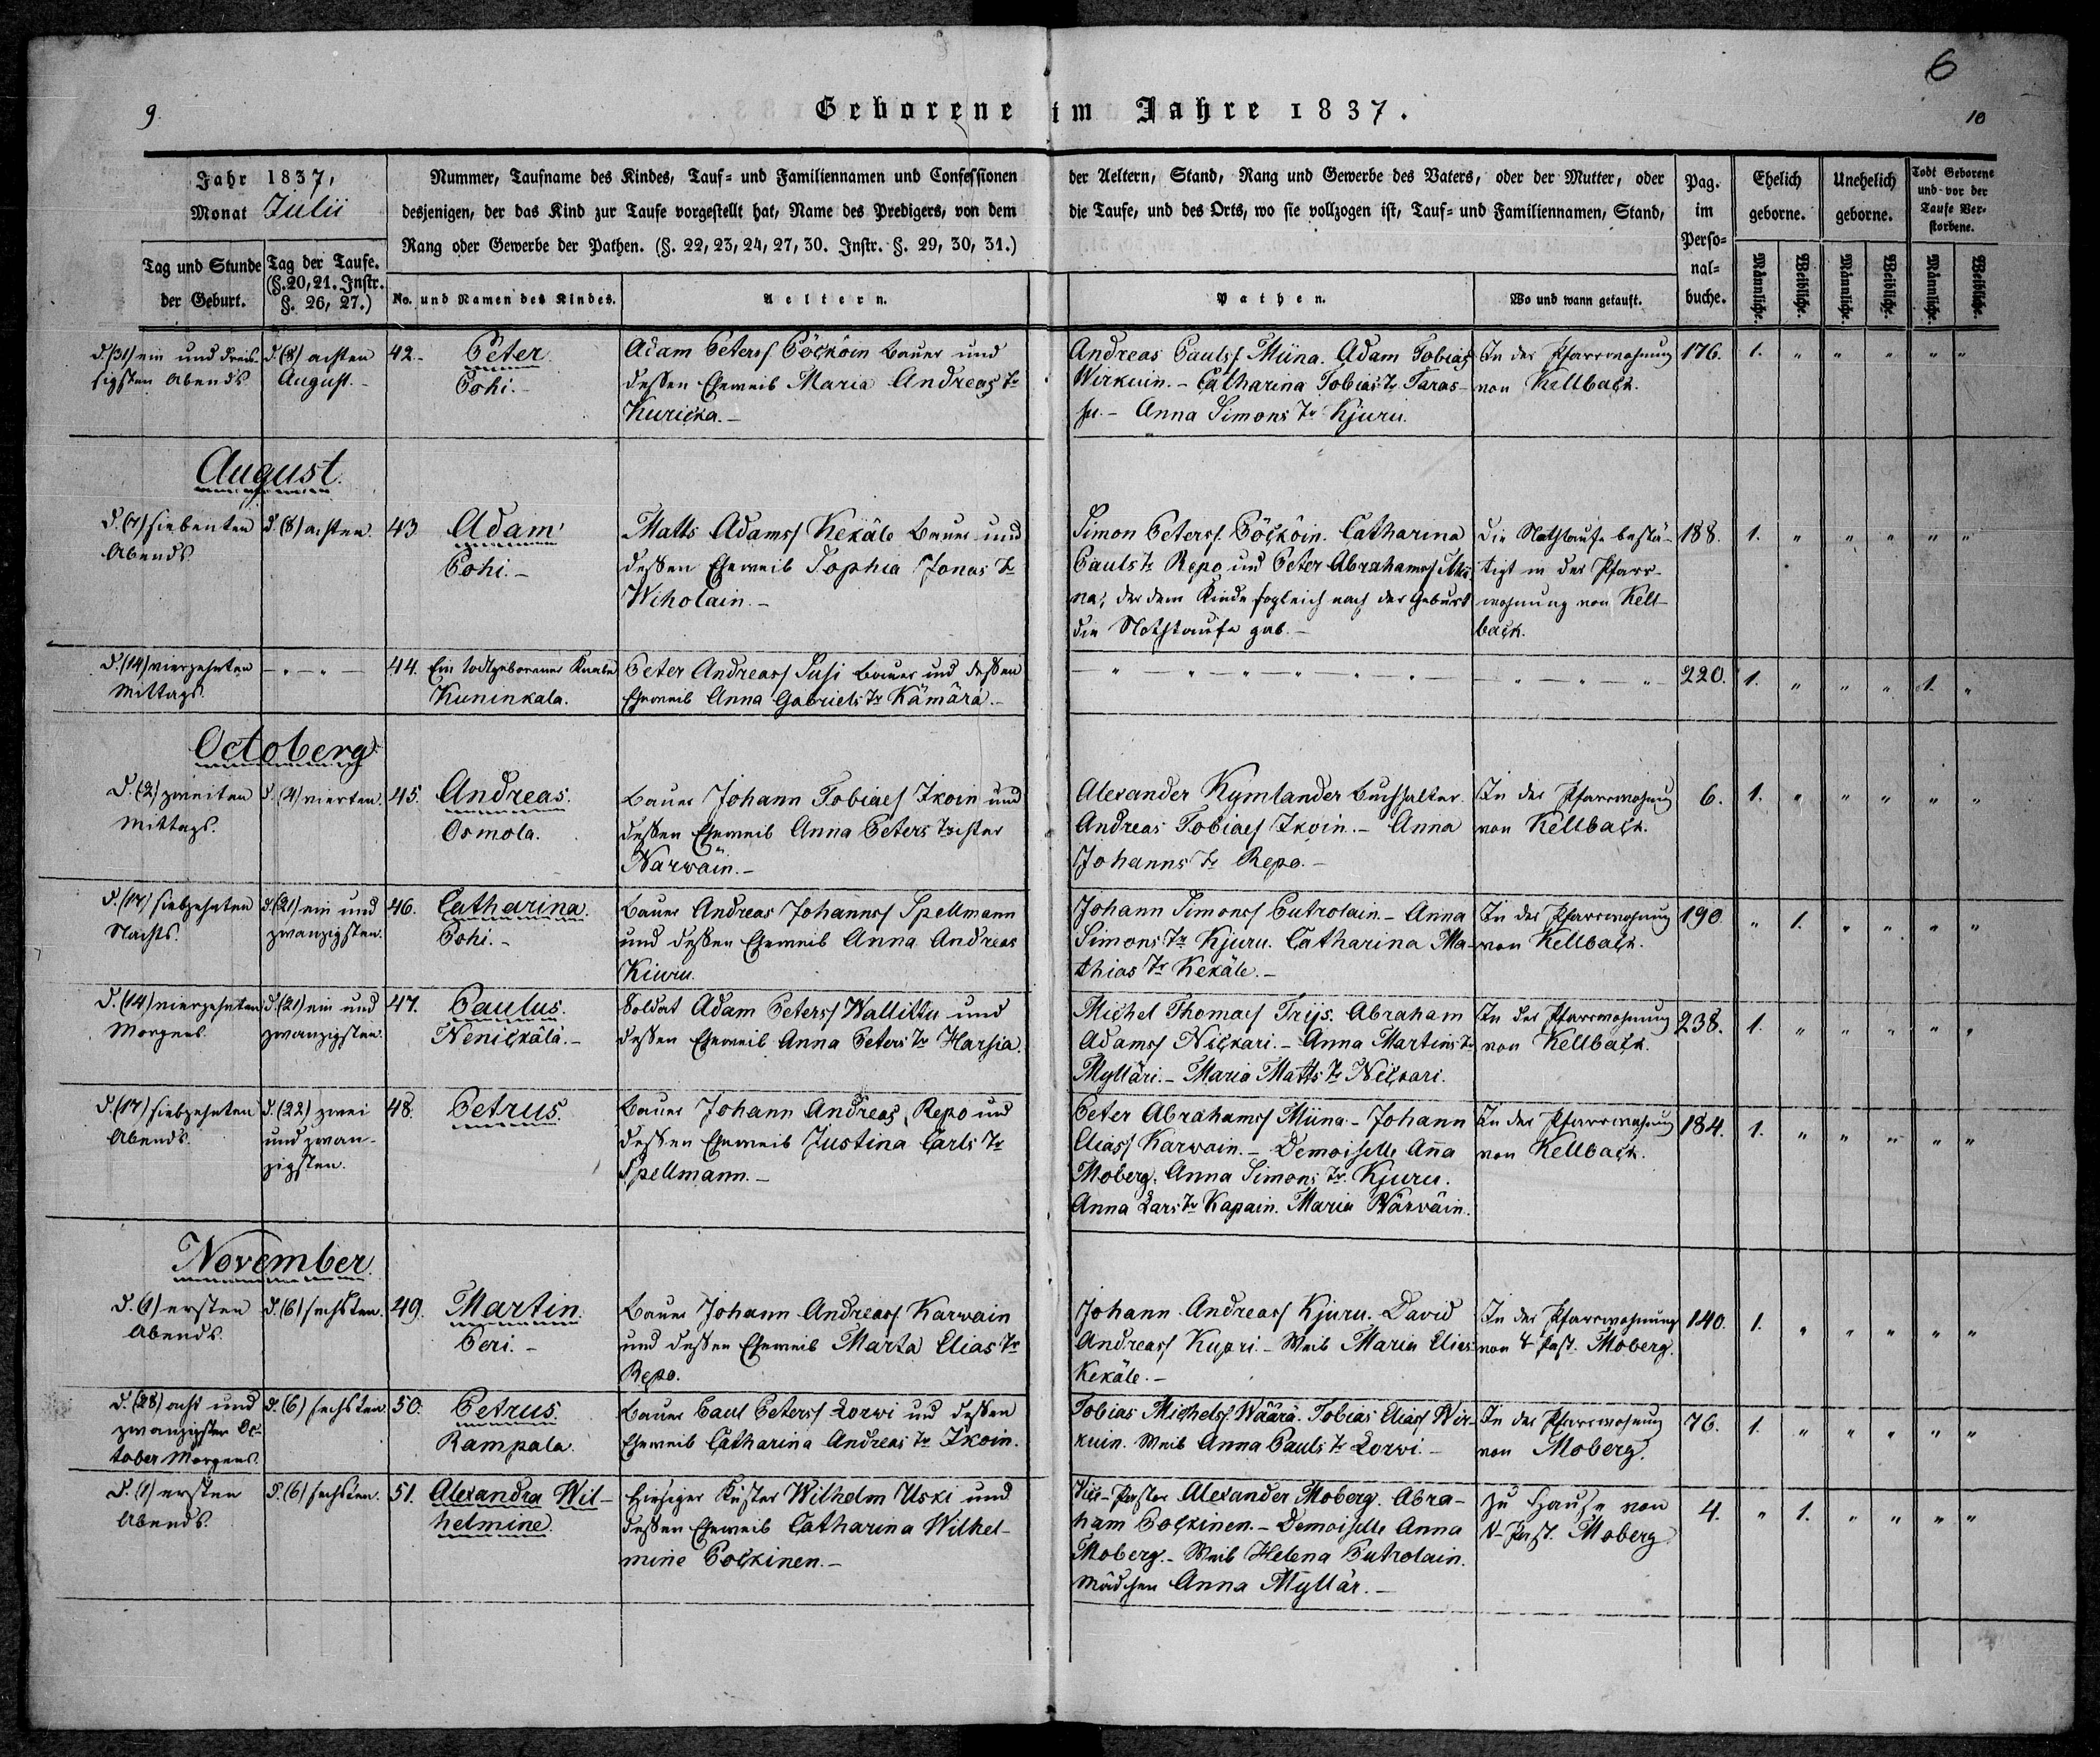 6
9.
Geborene im Jahre 1837.
10
Jahr 1837,
Monat Julii
Nummer, Taufname des Kindes, Tauf- und Familiennamen und Confessionen
desjenigen, der das Kind zur Taufe vorgestellt hat, Name des Predigers, von dem
Rang oder Gewerbe der Pathen. (§. 22, 23, 24, 27, 30. Instr. §. 29, 30, 31.)
der Aeltern, Stand, Rang und Gewerbe des Vaters, oder der Mutter, oder
die Taufe, und des Orts, wo sie vollzogen ist, Tauf- und Familiennamen, Stand,
Pag.
im
Perso-
nal-
buche.
Ehelich
geborne.
Unehelich
geborne.
Todt Geborene
und vor der
Taufe Ver-
storbene.
Tag und Stunde
der Geburt.
Tag der Taufe.
(§. 20, 21. Instr.
§. 26, 27.)
No. und Namen des Kindes.
Aeltern.
Pathen.
Wo und wann getauft.
Männliche.
Weibliche.
Männliche.
Weibliche.
Männliche.
Weibliche.
d. (31) ein und dreis-
sigsten Abends
d. (8) achten
August.-
42.-
Peter
Pohi.-
Adam Peterss Pöcköin Bauer und
dessen Eheweib Maria Andreas Tr
Kuricka.-
Andreas Paulss Miina. Adam Tobias
Wirkuin.- Catharina Tobias Tr Taras-
su.- Anna Simons Tr Kjuru.
In der Pfarrwohnung
von Kellback.
176. 1. " " " " "
August.
d. (7) siebenten
Abends.
d. (8) achten.
43
Adam
Pohi.-
Matts Adamss Kekäle Bauer und
dessen Eheweib Sophia Jonas Tr
Wiholain.-
Simon Peterss. Pöcköin. Catharina
Pauls Tr Repo und Peter Abrahamss
na, der dem Kinde sogleich nach der Geburt
die Nothtaufe gab.-
die Nothtaufe bestä-
tigt in der Pfarr-
wohnung von Kell-
back.
188. 1. " " " " "
d. (14) vierzehnten
Mittags.
- " - " -
44. Ein todtgeborener Knabe
Kuninkala.
Peter Andreass Susi Bauer und dessen
Eheweib Anna Gabriels Tr Kämärä.-
" - " - " - " - " - "
" - " - "
220. 1. " " " 1. "
October
d. (2) zweiten
Mittags.
d. (4) vierten.
45.
Andreas.
Osmola.
Bauer Johann Tobiass Ikoin und
dessen Eheweib Anna Peters Tochter
Narwäin.-
Alexander Kymlander Buchhalter.
Andreas Tobiass Ikoin.- Anna
Johanns Tr Repo.-
In der Pfarrwohnung
von Kellback.
6. 1. " " " " "
d. (17) siebzehnten
Nachts.
d. (21) ein und
zwanzigsten.
46.
Catharina.
Pohi.-
Bauer Andreas Johannss Spellmann
und dessen Eheweib Anna Andreas
Kiuru.
Johann Simonss Putrolain.- Anna
Simons Tr Kjuru. Catharina Ma-
thias Tr Kekäle.-
In der Pfarrwohnung
von Kellback.
190. " 1. " " " "
d. (14) vierzehnten
Morgens.
d. (21) ein und
zwanzigsten.
47.
Paulus.
Nenickälä.-
Soldat Adam Peterss Wallittu und
dessen Eheweib Anna Peters Tr Harjia.
Michel Thomass Trÿs. Abraham
Adamss Nickari.- Anna Martins Tr
Mylläri.- Maria Matts Tr Nickari.
In der Pfarrwohnung
von Kellback.
238. 1. " " " " "
d. (17) siebzehnten
Abends.
d. (22) zwei
und zwan-
zigsten.
48.
Petrus.
Bauer Johann Andreas, Repo und
dessen Eheweib Justina Carls Tr
Spellmann.-
Peter Abrahamss Miina.- Johann
Eliass Karwain.- Demoiselle Anna
Moberg. Anna Simons Tr. Kjuru.
Anna Lars Tr Kapain. Maria Närwäin.
In der Pfarrwohnung
von Kellback.
184. 1. " " " " "
November.
d. (1) ersten
Abends.
d. (6) sechsten.
49.
Martin.
Peri.-
Bauer Johann Andreass. Karwain
und dessen Eheweib Marta Elias Tr
Repo.
Johann Andreass Kjuru. David
Andreass Kupri.- Weib Maria Elias
Kekäle.-
In der Pfarrwohnung
von V Past. Moberg.
140. 1. " " " " "
d. (28) acht und
zwanzigsten Oc-
tober Morgens.
d. (6) sechsten.
50.
Petrus.
Rampala.
Bauer Paul Peterss Lorwi und dessen
Eheweib Catharina Andreas Tr Ikoin.
Tobias Michelss. Wäärä. Tobias Eliass Wir-
kuin. Weib Anna Pauls Tr Lorwi.-
In der Pfarrwohnung
von Moberg.
76. 1. " " " " "
d. (1) ersten
Abends.
d. (6) sechsten.
51.
Alexandra Wil-
helmine.
Hiesiger Küster Wilhelm Uski und
dessen Eheweib Catharina Wilhel-
mine Pockinen.-
Vice-Pastor Alexander Moberg. Abra-
ham Pockinen.- Demoiselle Anna
Moberg.- Weib Helena Putrolain.
Mädchen Anna Myllär.-
Zu Hause von
V-Past. Moberg
4. " 1. " " " "